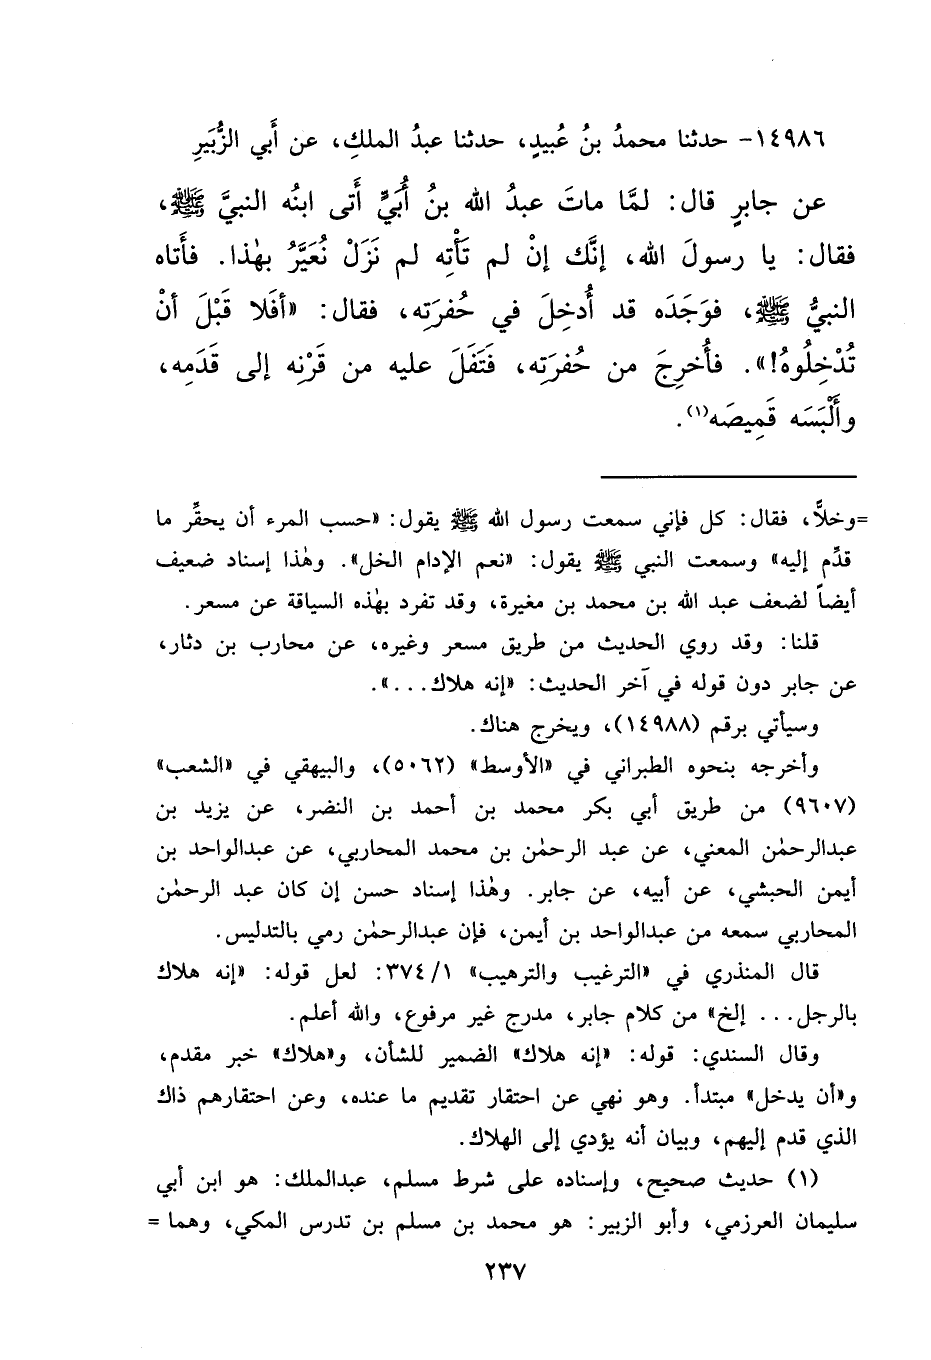 ١٤٩٨٦- حدثنا محمدُ بنُ عُبيدٍ، حدثنا عبدُ الملكِ، عن أَبي الزُّبَيرِ
عن جابرٍ قال: لمَّا ماتَ عبدُ الله بنُ أُبَيٍّ أَتى ابنُه النبيَّ ﷺ،
فقال: يا رسولَ الله، إنَّك إنْ لم تَأْتِه لم نَزَلْ نُعَيَّرُ بهٰذا. فأَتاه
النبيُّ ﷺ، فوَجَدَه قد أُدخِلَ في حُفرَتِه، فقال: «أفَلا قَبْلَ أنْ
تُدْخِلُوهُ!». فأُخرِجَ من حُفرَتِه، فتَفَلَ عليه من قَرْنِه إلى قَدَمِه،
وأَلْبَسَه قَمِيصَه(١).
=وخلًّا، فقال: كل فإني سمعت رسول الله ﷺ يقول: «حسب المرء أن يحقِّر ما
قدِّم إليه» وسمعت النبي ﷺ يقول: «نعم الإدام الخل». وهٰذا إسناد ضعيف
أيضاً لضعف عبد الله بن محمد بن مغيرة، وقد تفرد بهٰذه السياقة عن مسعر.
قلنا: وقد روي الحديث من طريق مسعر وغيره، عن محارب بن دثار،
عن جابر دون قوله في آخر الحديث: «إنه هلاك...».
وسيأتي برقم (١٤٩٨٨)، ويخرج هناك.
وأخرجه بنحوه الطبراني في «الأوسط» (٥٠٦٢)، والبيهقي في «الشعب»
(٩٦٠٧) من طريق أبي بكر محمد بن أحمد بن النضر، عن يزيد بن
عبدالرحمٰن المعني، عن عبد الرحمٰن بن محمد المحاربي، عن عبدالواحد بن
أيمن الحبشي، عن أبيه، عن جابر. وهٰذا إسناد حسن إن كان عبد الرحمٰن
المحاربي سمعه من عبدالواحد بن أيمن، فإن عبدالرحمٰن رمي بالتدليس.
قال المنذري في «الترغيب والترهيب» ٣٧٤/١: لعل قوله: «إنه هلاك
بالرجل... إلخ» من كلام جابر، مدرج غير مرفوع، والله أعلم.
وقال السندي: قوله: «إنه هلاك» الضمير للشأن، و«هلاك» خبر مقدم،
و«أن يدخل» مبتدأ. وهو نهي عن احتقار تقديم ما عنده، وعن احتقارهم ذاك
الذي قدم إليهم، وبيان أنه يؤدي إلى الهلاك.
(١) حديث صحيح، وإسناده على شرط مسلم، عبدالملك: هو ابن أبي
سليمان العرزمي، وأبو الزبير: هو محمد بن مسلم بن تدرس المكي، وهما =
٢٣٧